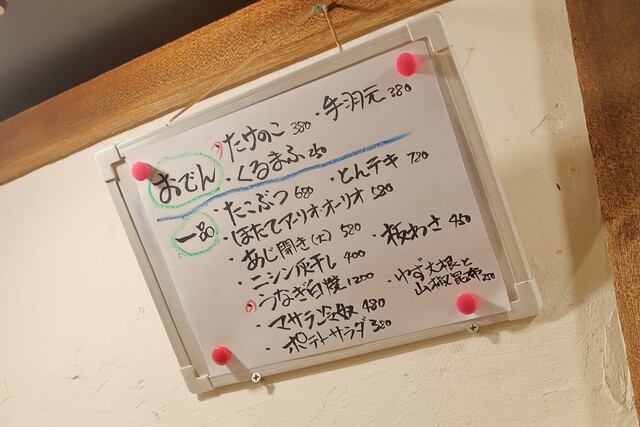 おでん
たけのこ 380 ・手羽元 380
・くるまふ 250
一品
・たこぶつ 680 ・とんテキ 780
・ほたてアーリオ・オーリオ 580
・あじ開き(大) 580 ・板わさ 450
・ニシン灰干し 400
うなぎ白焼 1200 ・ゆず大根と
山椒昆布
・マサラ冷奴 480
・ポテトサラダ 380